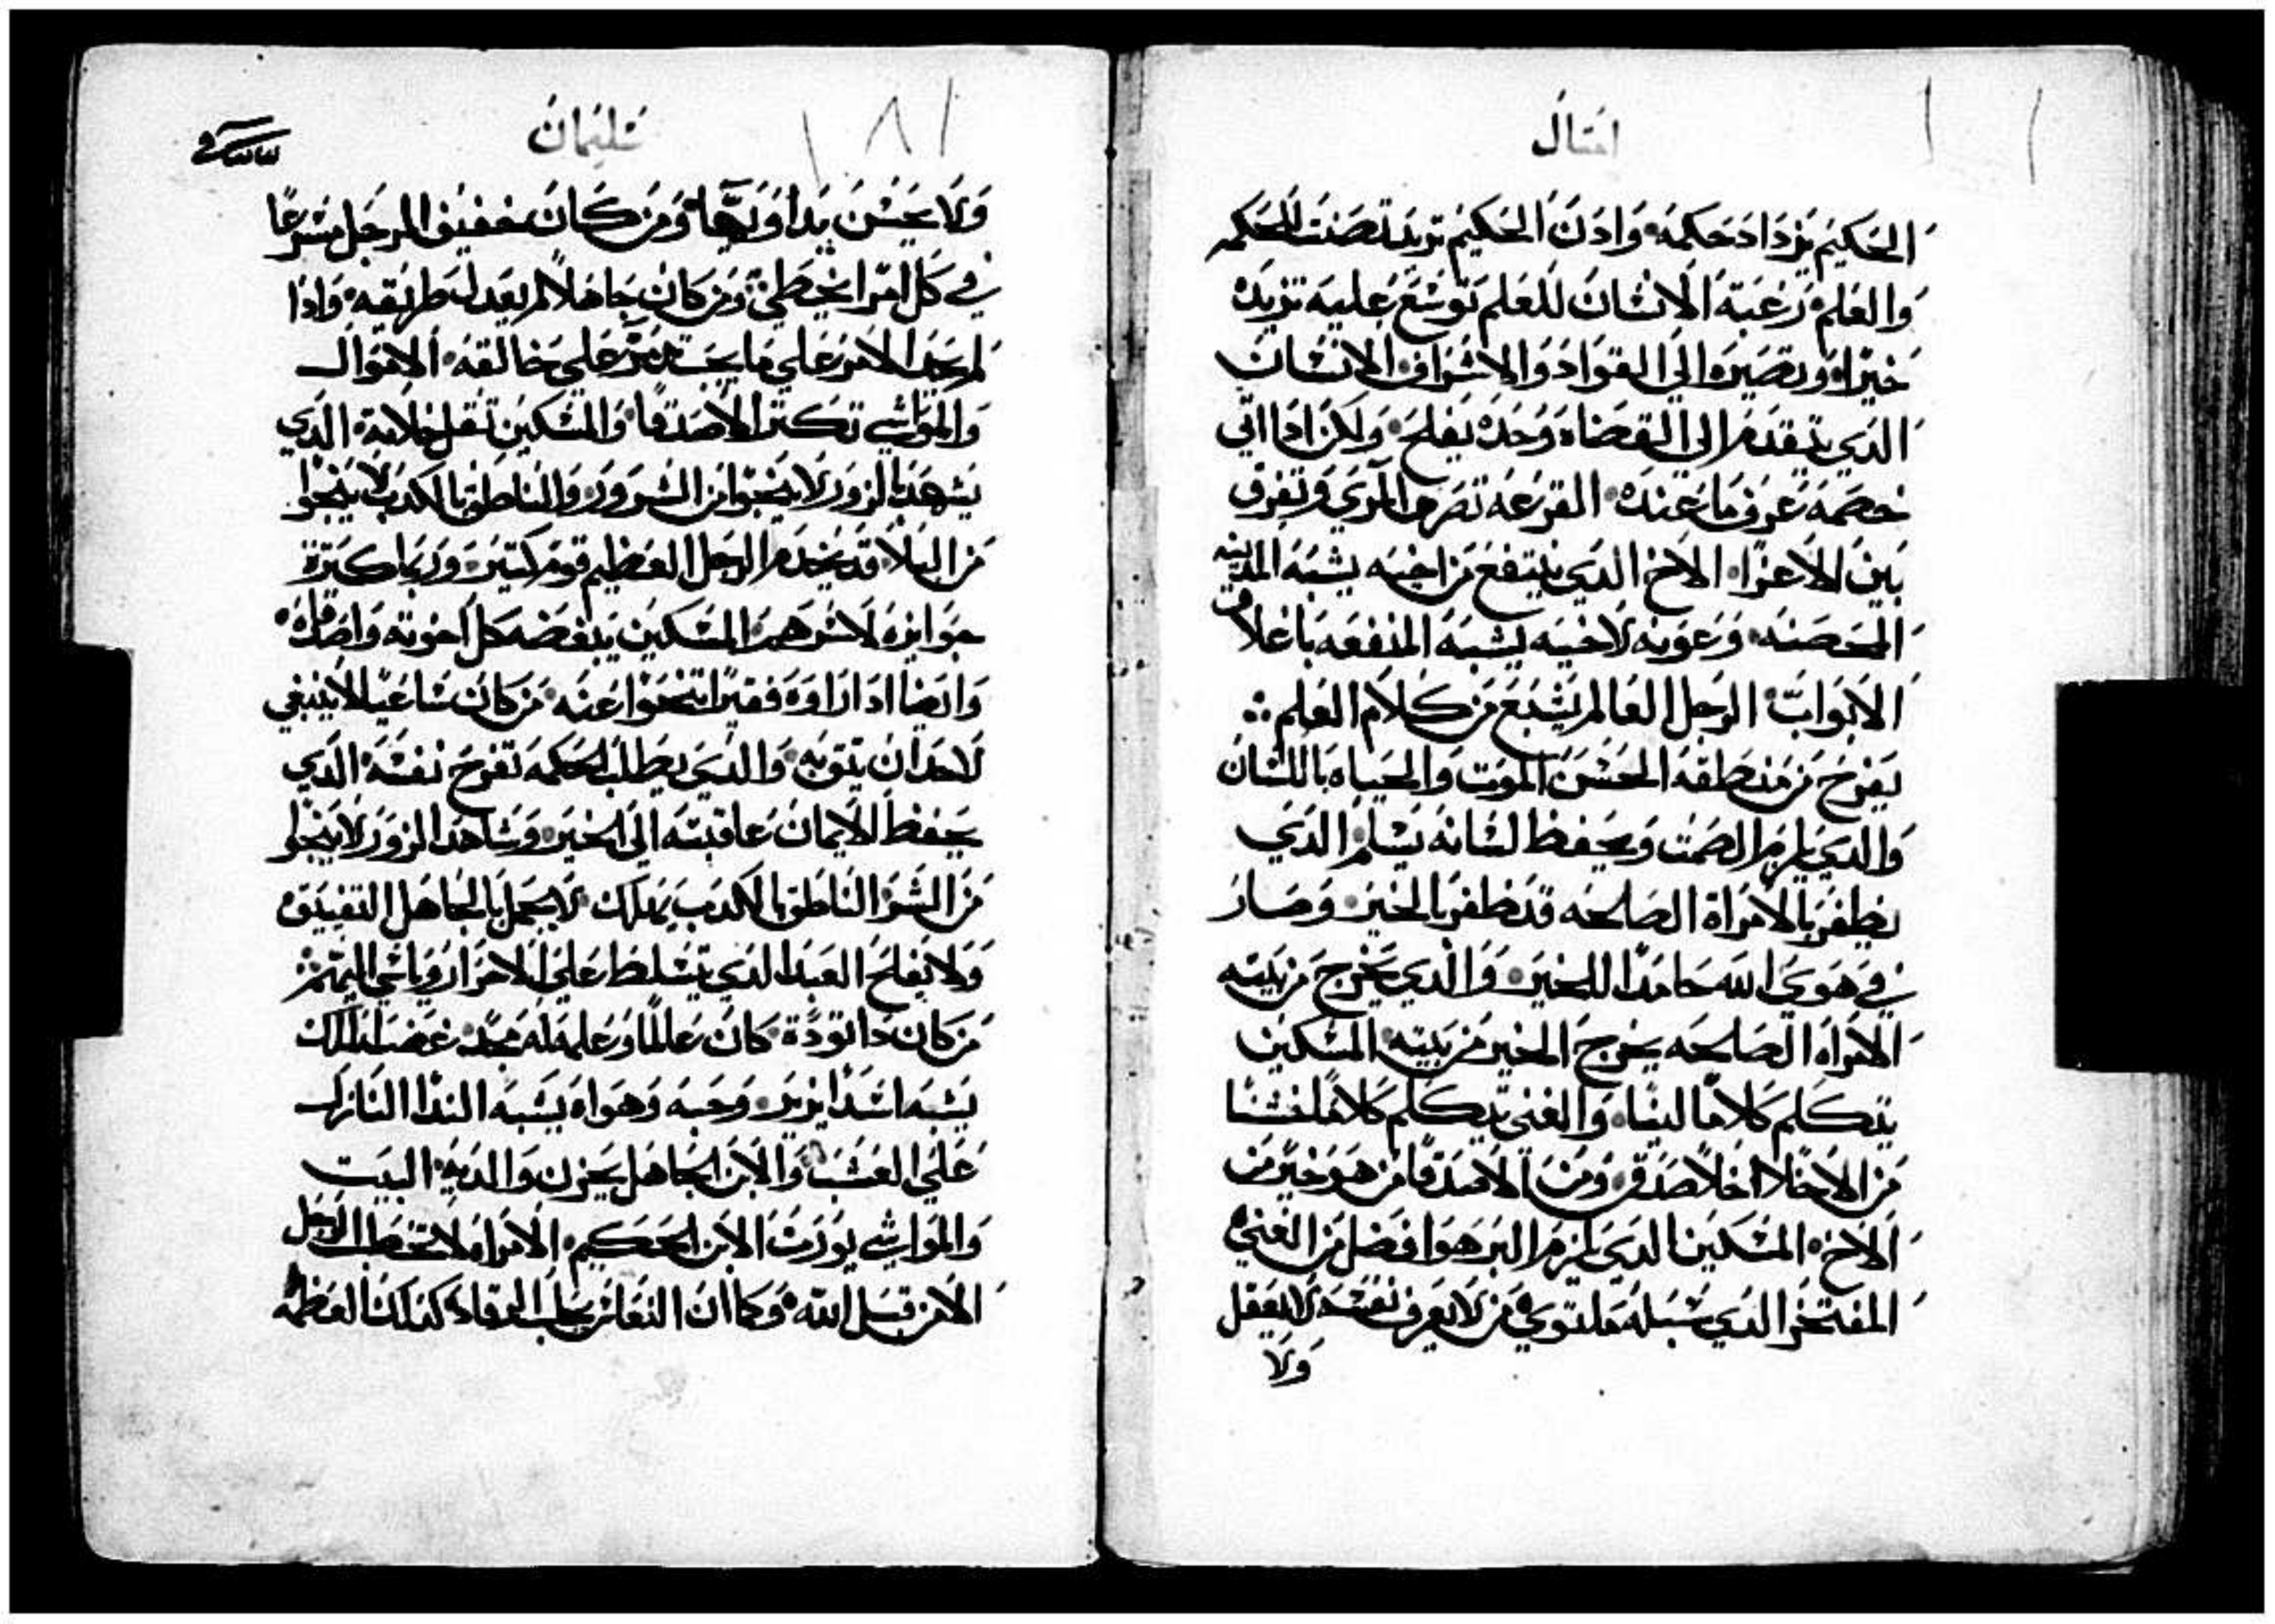 امثال
الحكيم يزداد حكمه وادن الحكيم تريد تصنت للحكمه
والعلم رغبة الانسان للعلم توسع عليه تزيده
خيرا وتصيره الي القواد والاشراف الانسان
الدي يتقدم الي القضاه وحده يفلح ولكن ادا اتي
خصمه عرف ما عنده القرعه تصرم المري وتفرق
بين الاعزا الاخ الدي ينتفع من اخيه يشبه المدينه
المحصنه وعونه لاخيه يشبه المنفعه باغلاق
الابواب الرجل العالم يشبع من كلام العلم
يفرح من منطقه الحسن الموت والحياه باللسان
والدي يلزم الصمت ويحفظ لسانه يسلم الدي
يظفر بالامراة الصالحه قد ظفر بالخير وصار
في هوي الله حامدا للخير والدي يخرج من بيته
الامراه الصالحه يخرج الخير من بيته المسكين
يتكلم كلاما لينا والغني يتكلم كلاما خشنا
من الاخلا اخلا صدق ومن الاصدقا من هو خير من
الاخ المسكين الدي يلزم البر هو افضل من الغني
المفتخر الدي سبله ملتوي من لا يعرف نفسه لا يعقل
ولا
سليمان
ولا يحسن يداويها ومن كان خفيف الرجل مسرعا
في كل امرا يخطي ومن كان جاهلا لم يعدل طريقه وادا
لم يجد الامر علي ما يحب تدمر علي خالقه الاموال
والمواشي تكتر الاصدقا والمسكين تقل خلانه الدي
يشهد بالزور لا ينجوا من الشرور والناطق بالكدب لا ينجوا
من البلا قد يخدم الرجل العظيم قوم كتير وربما كترة
جوايزه لاشرهم المسكين يبغضه كل اخوته واصدقاه
وايضا ادا راوه فقيرا تنحوا عنه من كان ساعيا لا ينبغي
لاحد ان يتق به والدي يطلب الحكمه تفرح نفسه الدي
يحفظ الايمان عاقبته الي الخير وشاهد الزور لا ينجوا
من الشر الناطق بالكدب يهلك لا يجمل بالجاهل التفينق
ولا يفلح العبد الدي يتسلط علي الاحرار
من كان دا تودة كان عالما وعلمه له مجد غضب الملك
يشبه اسدا يزير وحبه وهواه يشبه الندا النازل
علي العشب والابن الجاهل يحزن والديه البيت
والمواشي يورت الابن الحكيم الامراه لا تخطب الرجل
الا من قبل الله وكما ان النعاس يجلب الرقاد كدلك العظمه